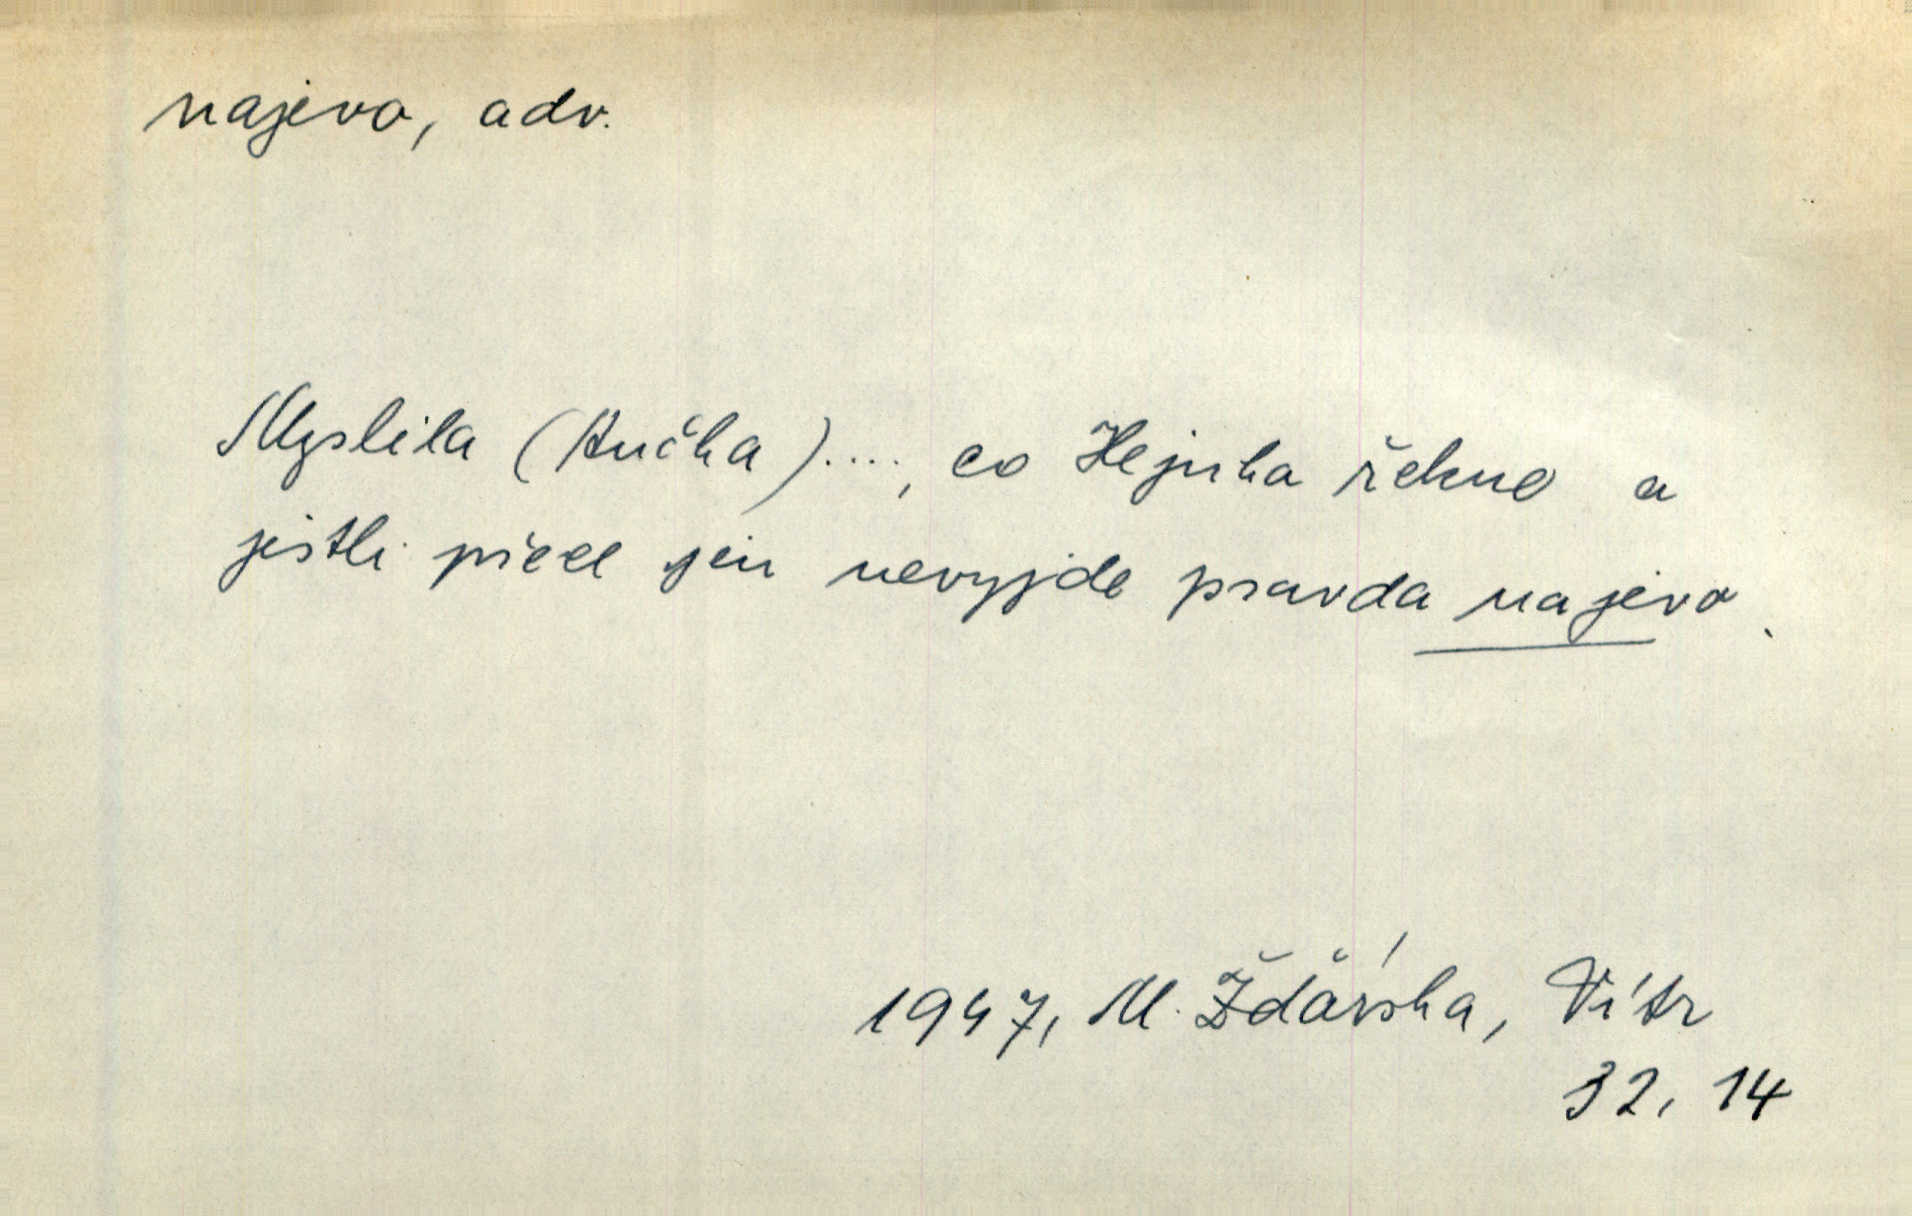 najevo, adv.
Myslila (Ančka)...., co Hejnka řekne a
jestli před jen nevyjde pravda najevo.
1947, M. Žďárska, Vítr
32, 14